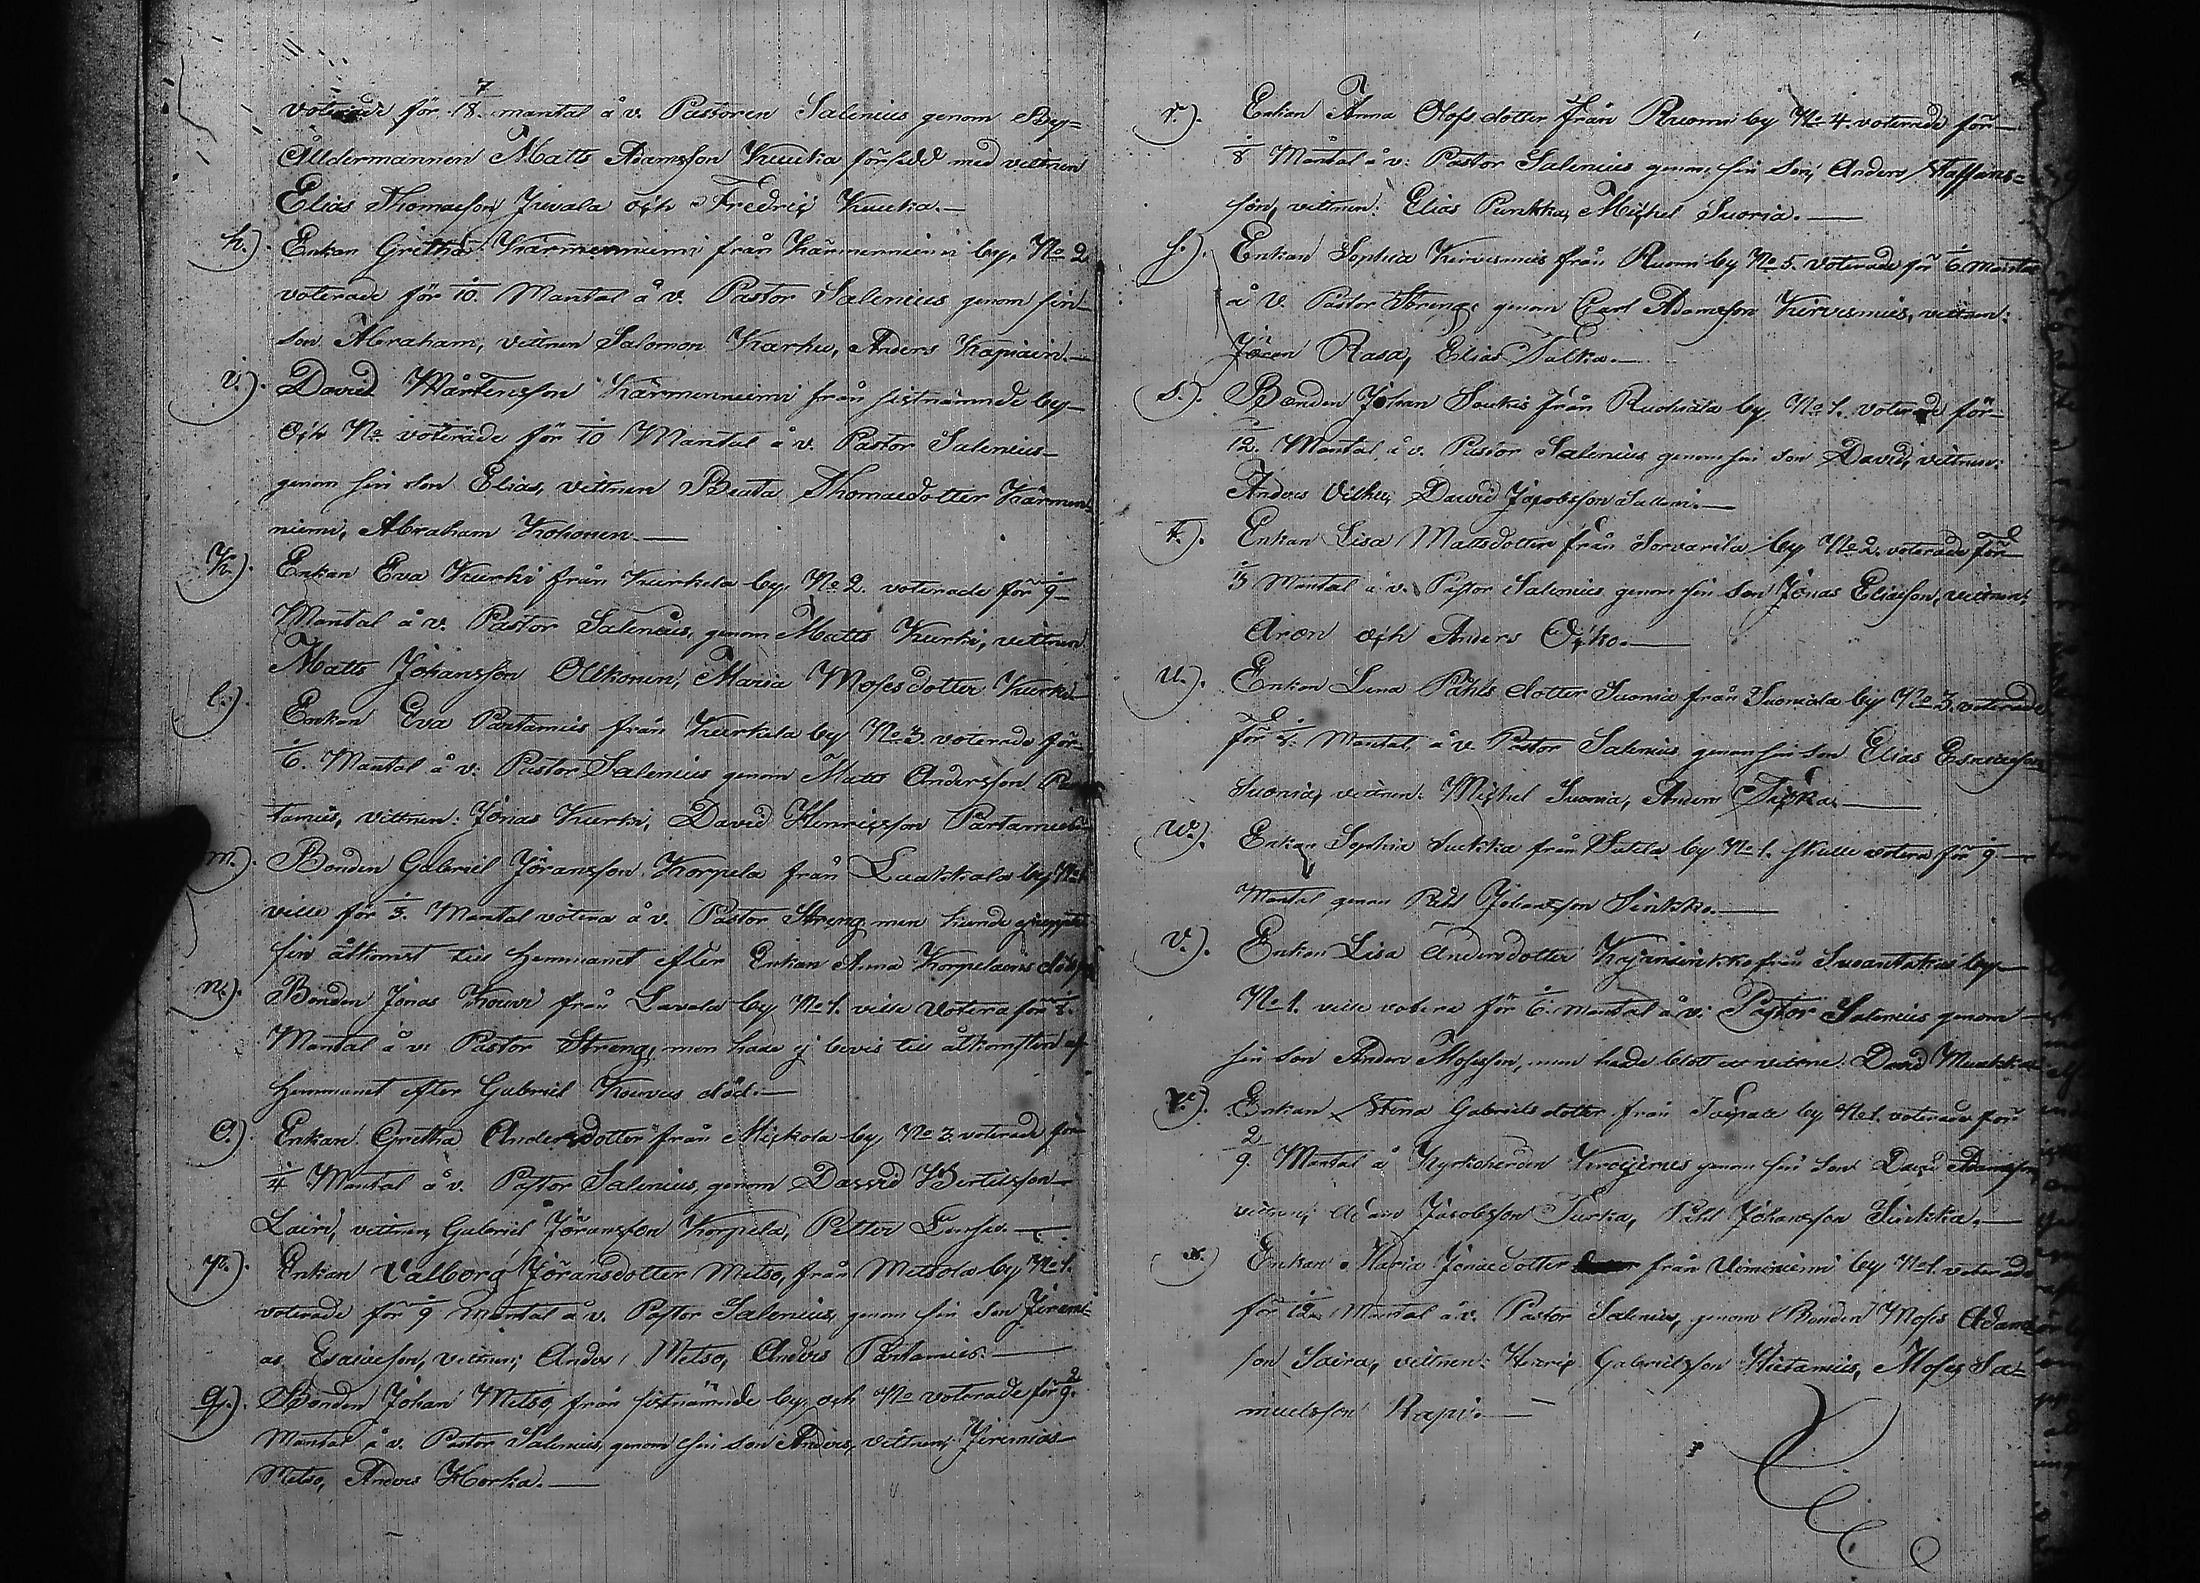 voterade för 7/18. mantal å v. Pastoren Salenius genom By=
Ålldermannen Matts Adamsson Kuukka försedd med vittnen
Elias Thomasson Juvala och Fredric Kuukka.—
h.). Enkan Gretha Kärmenniemi från Kärmenniemi by, No 2
voterade för 1/10. Mantal å v. Pastor Salenius genom sin
son Abraham, vittnen Salomon Karhu, Anders Kapiain.—
i.). David Mårtensson Kärmenniemi från sistnämnde by
och No voterade för 1/10 Mantal å v. Pastor Salenius
genom sin son Elias, vittnen Beata Thomasdotter Kärmen
niemi, Abraham Kohonen.—
K.). Enkan Eva Kurki från Kurkela by No 2. voterade för 1/9
Mantal å v. Pastor Salenius, genom Matts Kurki, vittnen
Matts Johansson Ollkonen, Maria Mosesdotter Kurki
l.). Enkan Eva Partamies från Kurkela by No 3. voterade för
1/6. Mantal å v. Pastor Salenius genom Matts Andersson Par
tamies, vittnen: Jonas Kurki, David Henricsson Partamies
m.). Bonden Gabriel Jöransson Korpela från Laakkala by No 1
ville för 1/3. Mantal votera å v. Pastor Streng men kunde ej uppte
sin åtkomst till Hemmanet efter Enkan Anna Korpelaens död
n.). Bonden Jonas Kouvi från Lavola by No 1. ville Votera för 1/8.
Mantal å v: Pastor Streng, men hade ej bevis till åtkomsten af
Hemmanet efter Gabriel Kouvus död.—
o.). Enkan Gretha Andersdotter från Mickola by No 3 voterade för
1/4 Mantal å v. Pastor Salenius, genom David Bertilsson
Lairi, vittnen, Gabriel Jöransson Korpela, Petter —
p.). Enkan Valborg Jöransdotter Metso, från Metsola by No 1.
voterade för 1/9 mantal å v. Pastor Salenius, genom sin Son Jeremi
as Esaiesson, vittnen; Anders Metso, Anders Partamies.—
q.). Bonden Johan Metso, från sistnämnde by, och No voterade för 2/9.
Mantal å v. Pastor Salenius, genom sin son Anders, vittnen; Jeremias
Metso, Anders Horka.—
r.). Enkan Anna Olofsdotter från Ruomi by No 4. voterade för—
1/8 Mantal å v: Pastor Salenius genom sin Son, Anders Staffans=
son, vittnen: Elias Punkka, Michel Suoria.—
f.). Enkan Sophia Kirvesmies från Ruomi by No 5. Voterade för 1/6. Mantal
å V. Pastor Streng, genom Carl Adamsson Kirvesmies, vittnen:
Jöran Rasa, Elias Talka.—
s.). Bonden Johan Soukis från Ruohiala by No 1. voterade för—
1/12. Mantal å v. Pastor Salenius genom sin son David, vittnen:
Anders Vilhu, David Jacobsson Salloin.—
t.). Enkan Lisa Mattsdotter från Sorvarila by No 2. voterade för
Mantal å v. Pastor Salenius genom sin son Jonas Eliasson, vittnen;
Aron och Anders Ocho.—
u.). Enkan Lena Påhls dotter Suonia från Suoniala by No 3. voterade
för 1/8. Mantal, å v Pastor Salenius genom sin son Elias Esaiasson
Suonia, vittnen: Michel Suonia, Anders Sicka.—
w.). Enkan Sophia Suckka från Suttla by No 1. skulle votera för 1/9—
Mantal genom Påhl Johansson Sinkko.—
v.). Enkan Lisa Andersdotter Kajansinkko från Suoantakas by—
No 1. ville votera för 1/6. mantal å v. Pastor Salenius genom—
sin son Anders Mosesson, men hade blott ett vittne: David Muukka
Enkan Stina Gabrielsdotter från Taipale by No 1. voterade för
2/9. Mantal å Kyrkoherden Krogerus genom sin Son David Adamsson,
vittnen; Adam Jacobsson Turka, Påhl Johansson Sinkka.—
x. Enkan Maria Jonasdotter från Uiminiemi by No 1. voterade
för 1/12 Mantal å v. Pastor Salenius, genom Bonden Moses Adams
son Saira, vittnen: Henric Gabrielsson Hietamies, Moses Sa=
muelsson Rapi.—